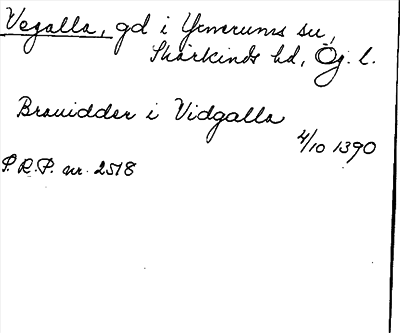 Vegalla, gd i Yxnerums su,
Skärkinds hd, Ög. l.
Brauidder i Vidgalla
4/10 1390
P.R.P. nr. 2518